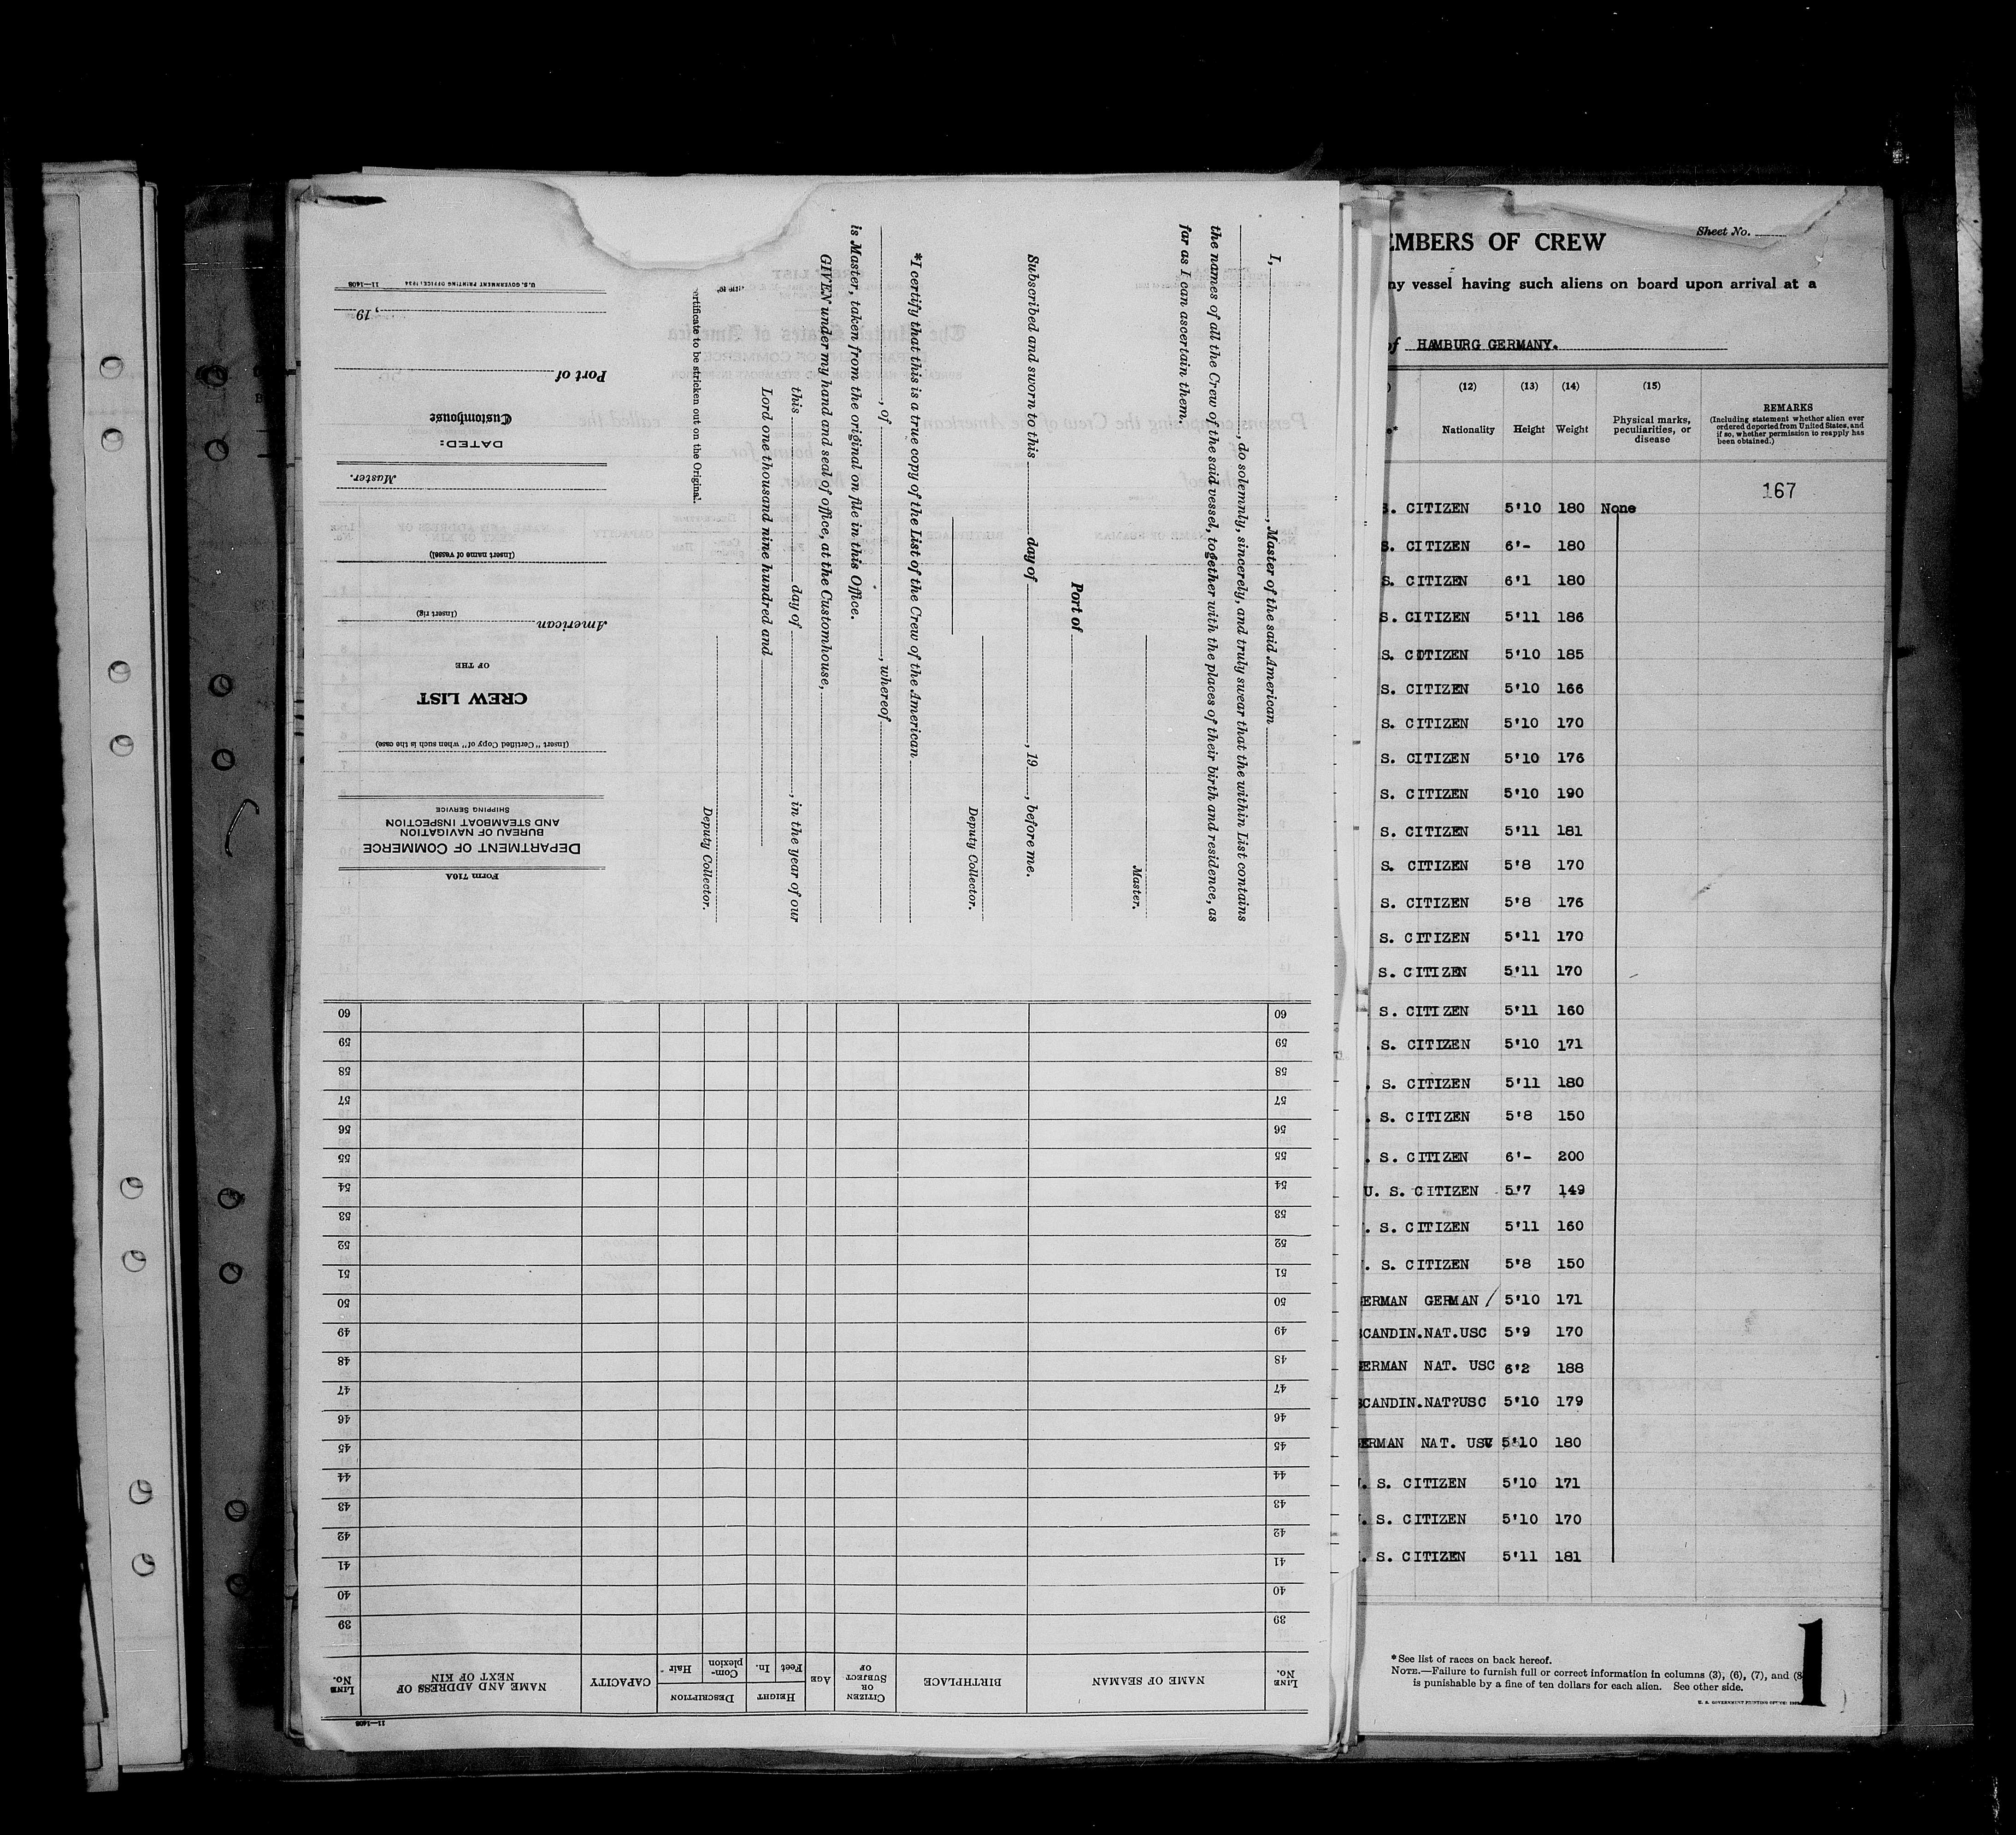 I, , Master of the said American
, do solemnly, sincerely, and truly swear that the within List contains
the names of all the Crew of the said vessel, together with the places of their birth and residence, as
far as I can ascertain them.
Master.
Port of
Subscribed and sworn to this day of , 19 , before me.
Deputy Collector.
*I certify that this is a true copy of the List of the Crew of the American
, of , whereof
is Master, taken from the original on file in this Office.
GIVEN under my hand and seal of office, at the Customhouse,
this day of , in the year of our
Lord one thousand nine hundred and
Deputy Collector.
ertificate to be stricken out on the Original.
Form 710A
DEPARTMENT OF COMMERCE
BUREAU OF NAVIGATION
AND STEAMBOAT INSPECTION
SHIPPING SERVICE
(Insert "Certified Copy of" when such is the case)
CREW LIST
OF THE
American
(Insert rig)
(Insert name of vessel)
Master.
DATED:
Customhouse
Port of
, 19
U. S. GOVERNMENT PRINTING OFFICE: 1934 11—1408
11—1408
LINE No. NAME OF SEAMAN BIRTHPLACE CITIZEN OR SUBJECT OF AGE HEIGHT Feet In. DESCRIPTION Complexion Hair CAPACITY NAME AND ADDRESS OF NEXT OF KIN LINE No.
39 39
40 40
41 41
42 42
43 43
44 44
45 45
46 46
47 47
48 48
49 49
50 50
51 51
52 52
53 53
54 54
55 55
56 56
57 57
58 58
59 59
60 60
Sheet No.
EMBERS OF CREW
ny vessel having such aliens on board upon arrival at a
of HAMBURG GERMANY.
(12) (13) (14) (15)
Nationality Height Weight Physical marks, peculiarities, or disease REMARKS
(Including statement whether alien ever ordered deported from United States, and if so, whether permission to reapply has been obtained.)
167
S. CITIZEN 5'10 180 None
S. CITIZEN 6'- 180
S. CITIZEN 6'1 180
S. CITIZEN 5'11 186
S. CITIZEN 5'10 185
S. CITIZEN 5'10 166
S. CITIZEN 5'10 170
S. CITIZEN 5'10 176
S. CITIZEN 5'10 190
S. CITIZEN 5'11 181
S. CITIZEN 5'8 170
S. CITIZEN 5'8 176
S. CITIZEN 5'11 170
S. CITIZEN 5'11 170
S. CITIZEN 5'11 160
. S. CITIZEN 5'10 171
. S. CITIZEN 5'11 180
. S. CITIZEN 5'8 150
. S. CITIZEN 6'- 200
U. S. CITIZEN 5'7 149
. S. CITIZEN 5'11 160
. S. CITIZEN 5'8 150
ERMAN GERMAN / 5'10 171
CANDIN.NAT.USC 5'9 170
ERMAN NAT. USC 6'2 188
CANDIN.NAT?USC 5'10 179
ERMAN NAT. USC 5'10 180
. S. CITIZEN 5'10 171
. S. CITIZEN 5'10 170
. S. CITIZEN 5'11 181
*See list of races on back hereof.
NOTE.—Failure to furnish full or correct information in columns (3), (6), (7), and (8
is punishable by a fine of ten dollars for each alien. See other side.
1